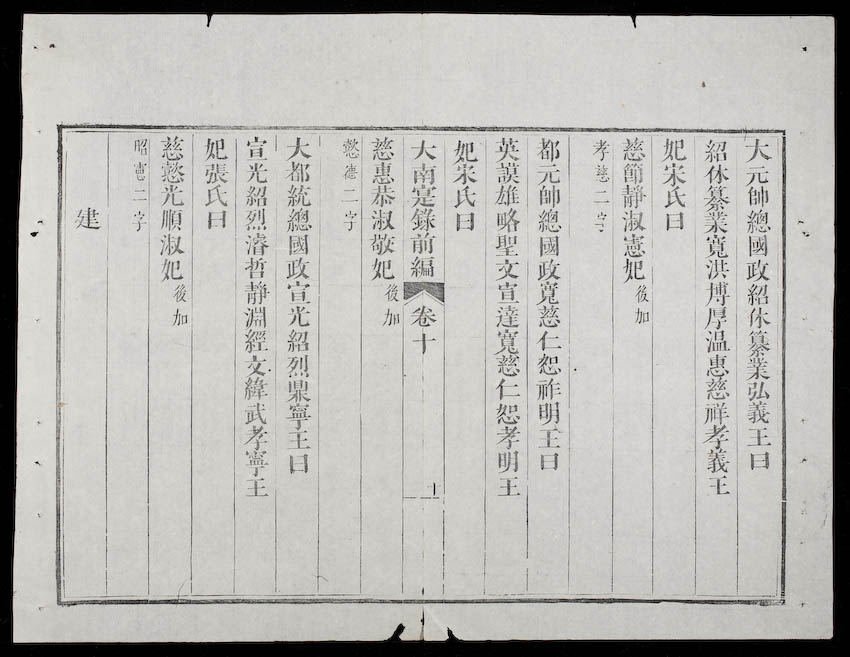 大元帥總國政紹休纂業弘義王曰
紹休纂業寬洪博厚温惠慈祥孝義王
妃宋氏曰
慈節靜淑憲妃後加
孝慈二字
都元帥總國政寬慈仁恕祚明王曰
英謨雄略聖文宣達寬慈仁恕孝明王
妃宋氏曰
大南寔錄前編 卷十 十
慈惠恭淑敬妃後加
懿德二字
大都統總國政宣光紹烈鼎寧王曰
宣光紹烈濬哲靜淵經文緯武孝寧王
妃張氏曰
慈懿光順淑妃後加
昭憲二字
建